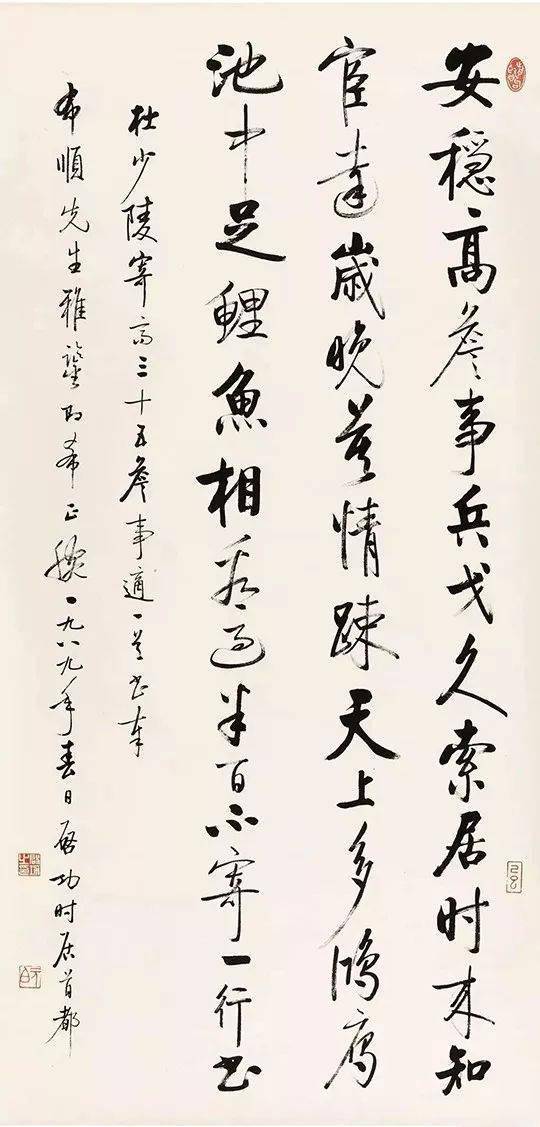 安穩高詹事兵戈久索居时来知
宦達歲晚莫情踈天上多鴻雁
池中足鯉魚相看過半百不寄一行书
杜少陵寄高三十五詹事適一首书奉
布順先生雅鑒即希正腕一九八九年春日啟功时居首都